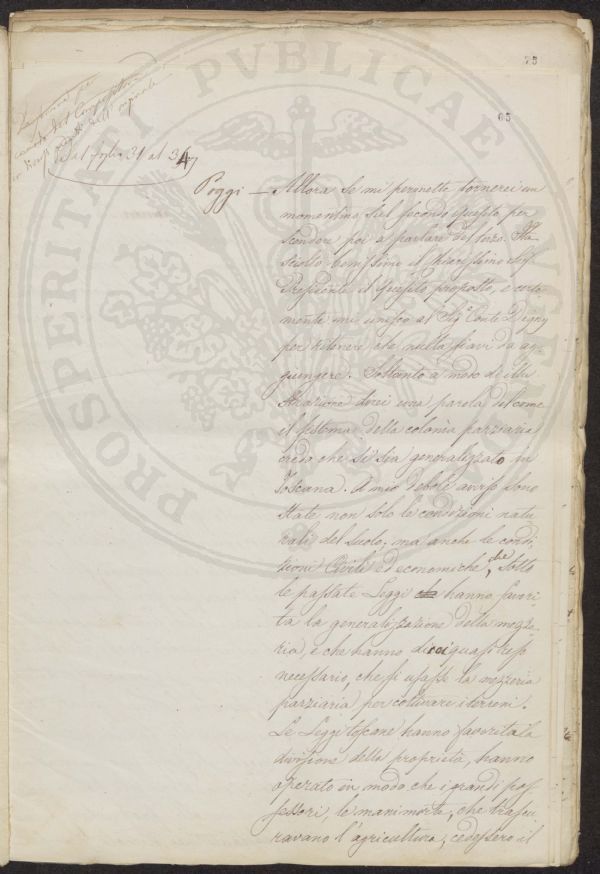 75
65
dal foglio 31 al 34
Poggi — Allora se mi permette tornerei un
momentino sul secondo quesito per
scendere poi a parlare del terzo. Ha
sciolto benissimo il chiarissimo Sigr
Presidente il quesito proposto, e certa
mente mi unisco al Sigr Conte Digny
per ritenere che nulla siavi da ag-
giungere. Soltanto a modo di illu
strazione direi una parola del come
il sistema della colonia parziaria
credo che si sia generalizzato in
Toscana. A mio debole avviso sono
state non solo le condizioni natu
rali del suolo, ma anche le condi
zioni civili ed economiche, che sotto
le passate Leggi hanno favori
ta la generalizzazione della mezze-
ria, e che hanno dirci quasi reso
necessario, che si usasse la mezzeria
parziaria per coltivare i terreni.
Le Leggi toscane hanno favorita la
divisione della proprietà, hanno
operato in modo che i grandi pos
sessori, le manimorte, che trascu
ravano l'agricultura, cedessero il
PROSPERITATI PVBLICAE AVGENDAE